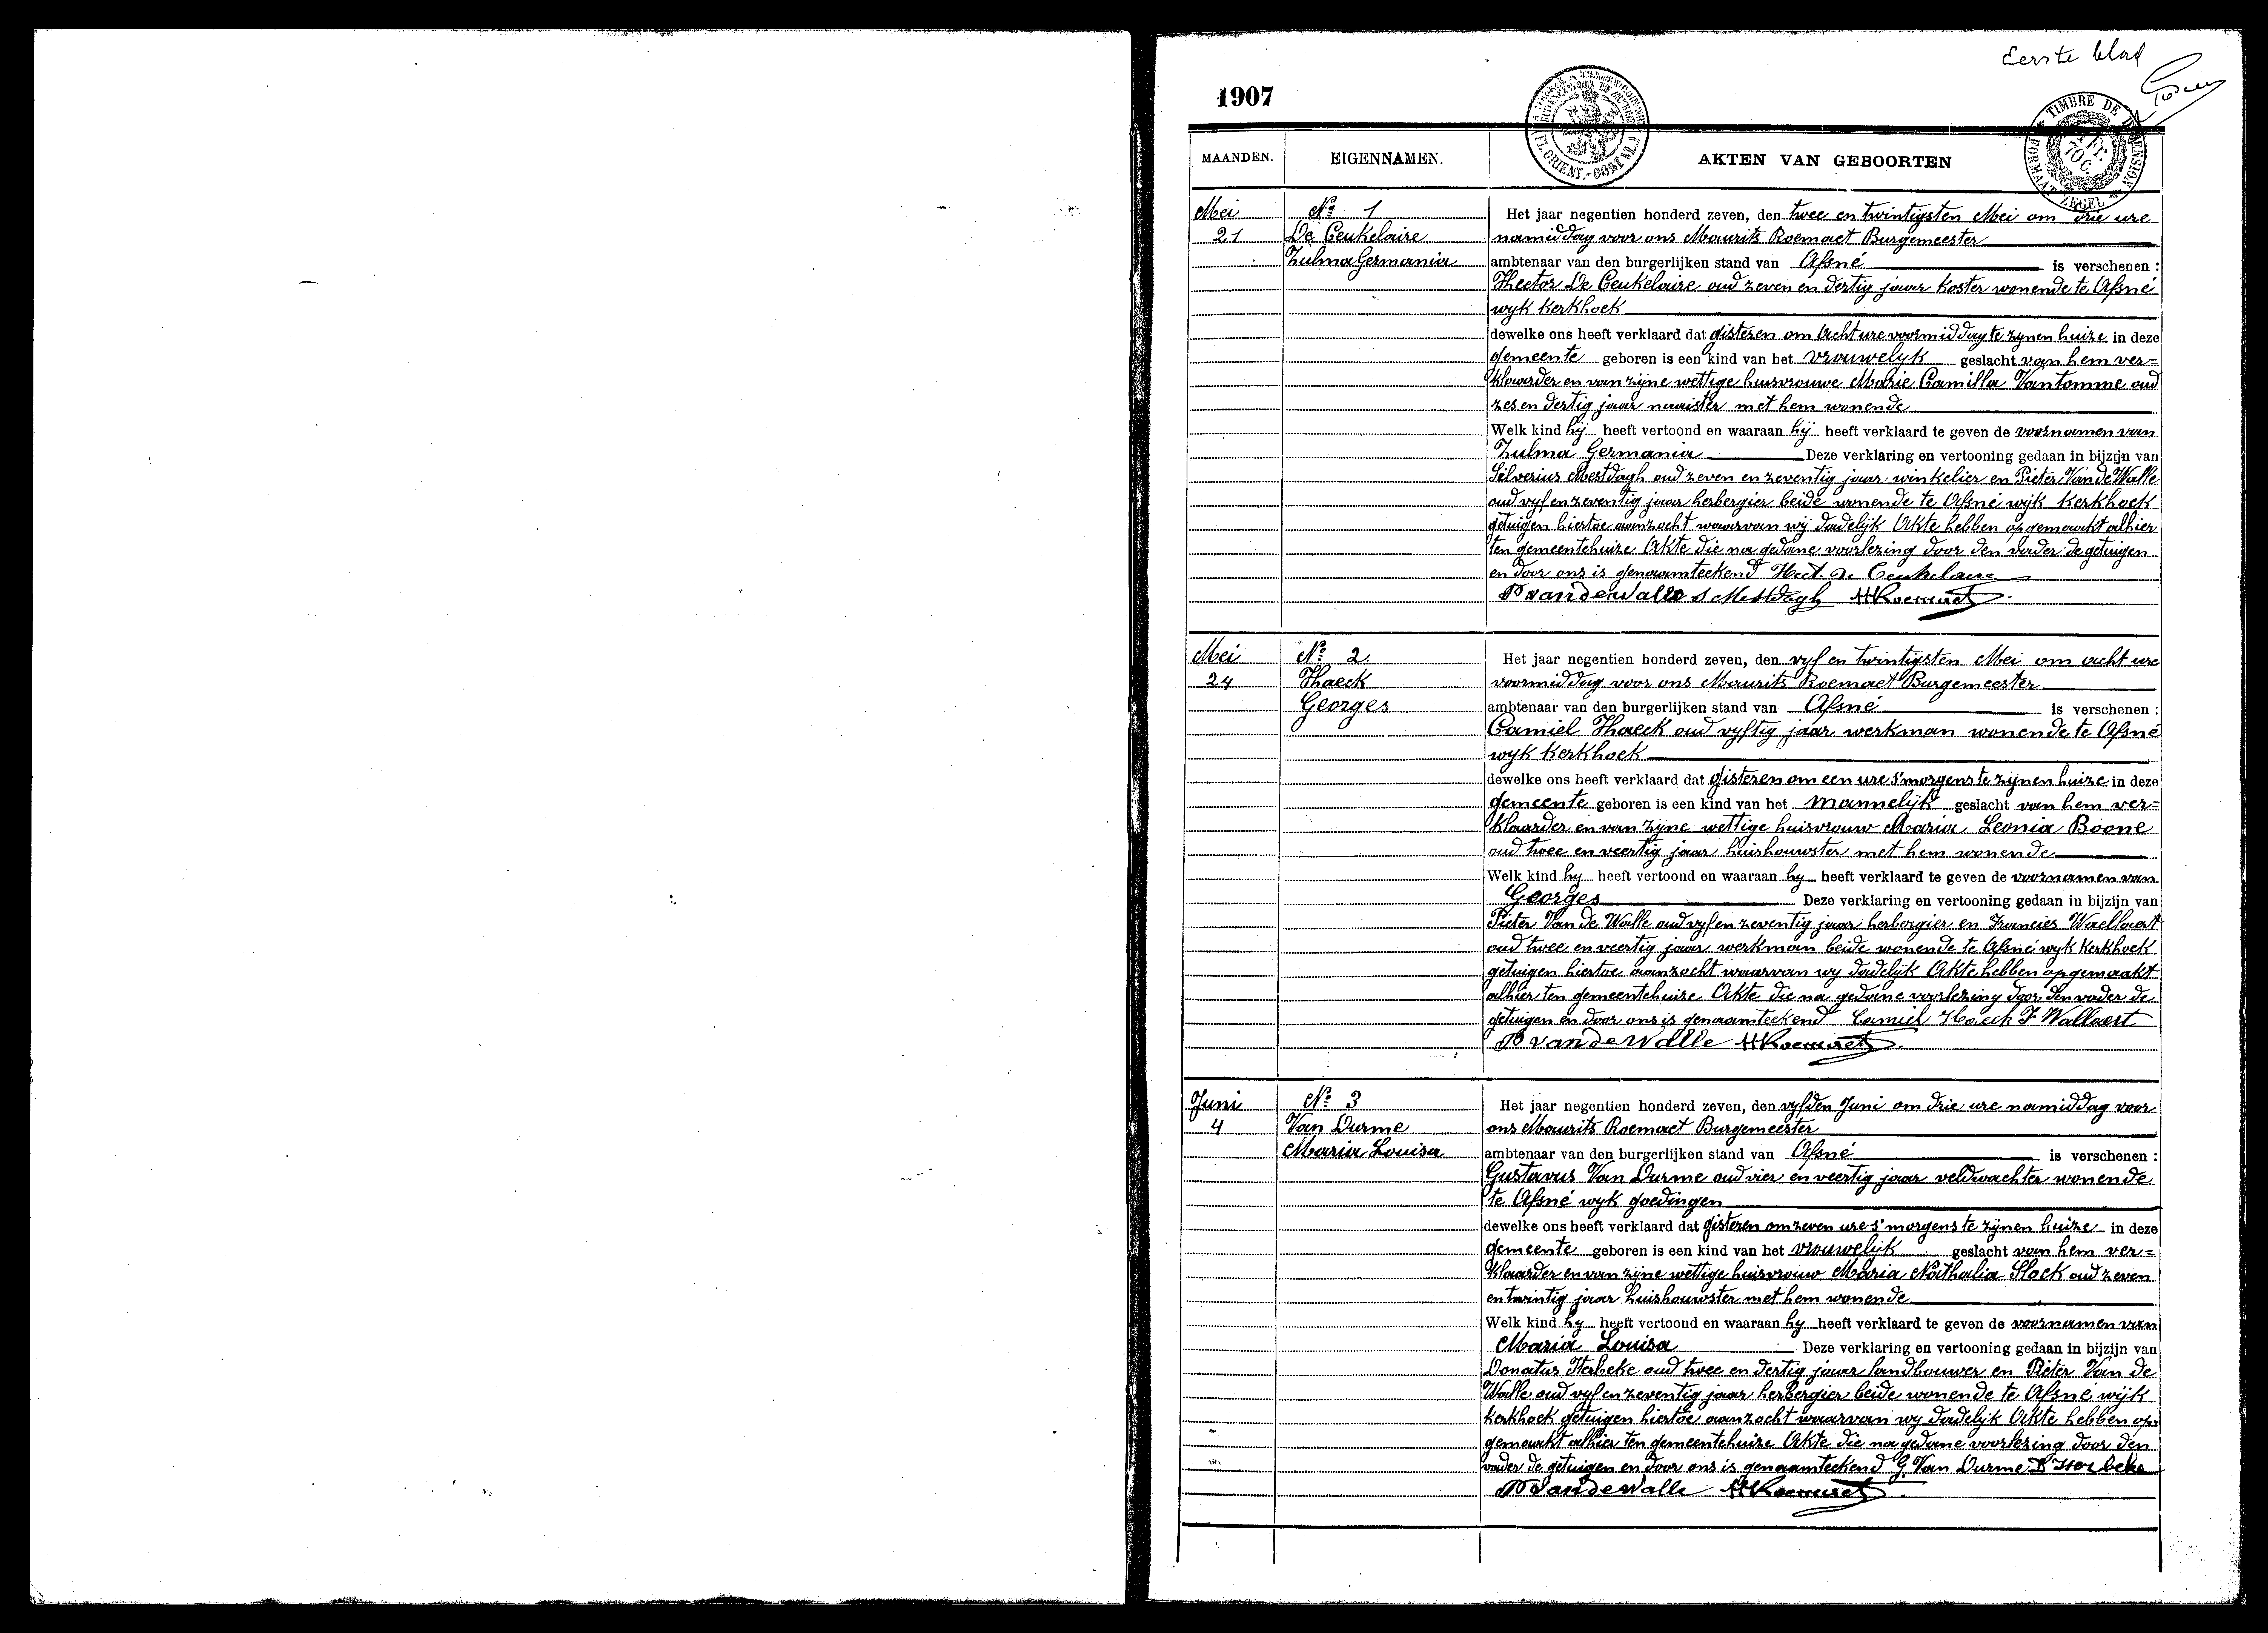 Eerste blad
1907
TIMBRE DE DIMENSION
FORMAAT ZEGEL
Fr.
70 C.
FL. ORIENT.-OOST VL.
MAANDEN. EIGENNAMEN. AKTEN VAN GEBOORTEN
Mei No 1 Het jaar negentien honderd zeven, den twee en twintigsten Mei om drie ure
21 De Ceukelaire namiddag voor ons Maurits Roemaet Burgemeester
Zulma Germania ambtenaar van den burgerlijken stand van Afsné is verschenen :
Hector De Ceukelaire oud zeven en dertig jaar koster wonende te Afsné
wyk Kerkhoek
dewelke ons heeft verklaard dat gisteren om Acht ure voormiddag te zynen huize in deze
gemeente geboren is een kind van het vrouwelyk geslacht van hem ver=
klaarder en van zijne wettige huisvrouwe Marie Camilla Vantomme oud
zes en dertig jaar naaister met hem wonende
Welk kind hij heeft vertoond en waaraan hij heeft verklaard te geven de voornamen van
Zulma Germania Deze verklaring en vertooning gedaan in bijzijn van
Silverius Mestdagh oud zeven en zeventig jaar winkelier en Pieter Van de Walle
oud vyf en zeventig jaar herbergier beide wonende te Afsné wijk Kerkhoek
getuigen hiertoe aanzocht waarvan wij dadelijk Akte hebben opgemaakt alhier
ten gemeentehuize Akte die na gedane voorlezing door den vader de getuigen
en door ons is genaamteekend Hect De Ceukelaire
P Vandewalle S Mestdagh MRoemaet
Mei No 2 Het jaar negentien honderd zeven, den vyf en twintigsten Mei om acht ure
24 Haeck voormiddag voor ons Maurits Roemaet Burgemeester
Georges ambtenaar van den burgerlijken stand van Afsné is verschenen :
Camiel Haeck oud vyftig jaar werkman wonende te Afsné
wyk Kerkhoek
dewelke ons heeft verklaard dat gisteren om een ure s'morgens te zijnen huize in deze
gemeente geboren is een kind van het mannelijk geslacht van hem ver=
klaarder en van zijne wettige huisvrouw Maria Leonia Boone
oud twee en veertig jaar huishouwster met hem wonende
Welk kind hy heeft vertoond en waaraan hy heeft verklaard te geven de voornamen van
Georges Deze verklaring en vertooning gedaan in bijzijn van
Pieter Van de Walle oud vyf en zeventig jaar herbergier en Francies Waellaert
oud twee en veertig jaar werkman beide wonende te Afsné wyk Kerkhoek
getuigen hiertoe aanzocht waarvan wy dadelijk Akte hebben opgemaakt
alhier ten gemeentehuize Akte die na gedane voorlezing door den vader de
getuigen en door ons is genaamteekend Camiel Haeck F Wallaert
P Vandewalle MRoemaet
Juni No 3 Het jaar negentien honderd zeven, den vyfden Juni om drie ure namiddag voor
4 Van Durme ons Maurits Roemaet Burgemeester
Maria Louisa ambtenaar van den burgerlijken stand van Afsné is verschenen :
Gustavus Van Durme oud vier en veertig jaar veldwachter wonende
te Afsné wyk goedingen
dewelke ons heeft verklaard dat gisteren om zeven ure s'morgens te zijnen huize in deze
gemeente geboren is een kind van het vrouwelijk geslacht van hem ver=
klaarder en van zijne wettige huisvrouw Maria Nathalia Slock oud zeven
en twintig jaar huishouwster met hem wonende
Welk kind hy heeft vertoond en waaraan hy heeft verklaard te geven de voornamen van
Maria Louisa Deze verklaring en vertooning gedaan in bijzijn van
Donatus Herbeke oud twee en dertig jaar landbouwer en Pieter Van de
Walle oud vyf en zeventig jaar herbergier beide wonende te Afsné wijk
Kerkhoek getuigen hiertoe aanzocht waarvan wy dadelijk Akte hebben op=
gemaakt alhier ten gemeentehuize Akte die na gedane voorlezing door den
vader de getuigen en door ons is genaamteekend G. Van Durme D Herbeke
P Vandewalle MRoemaet